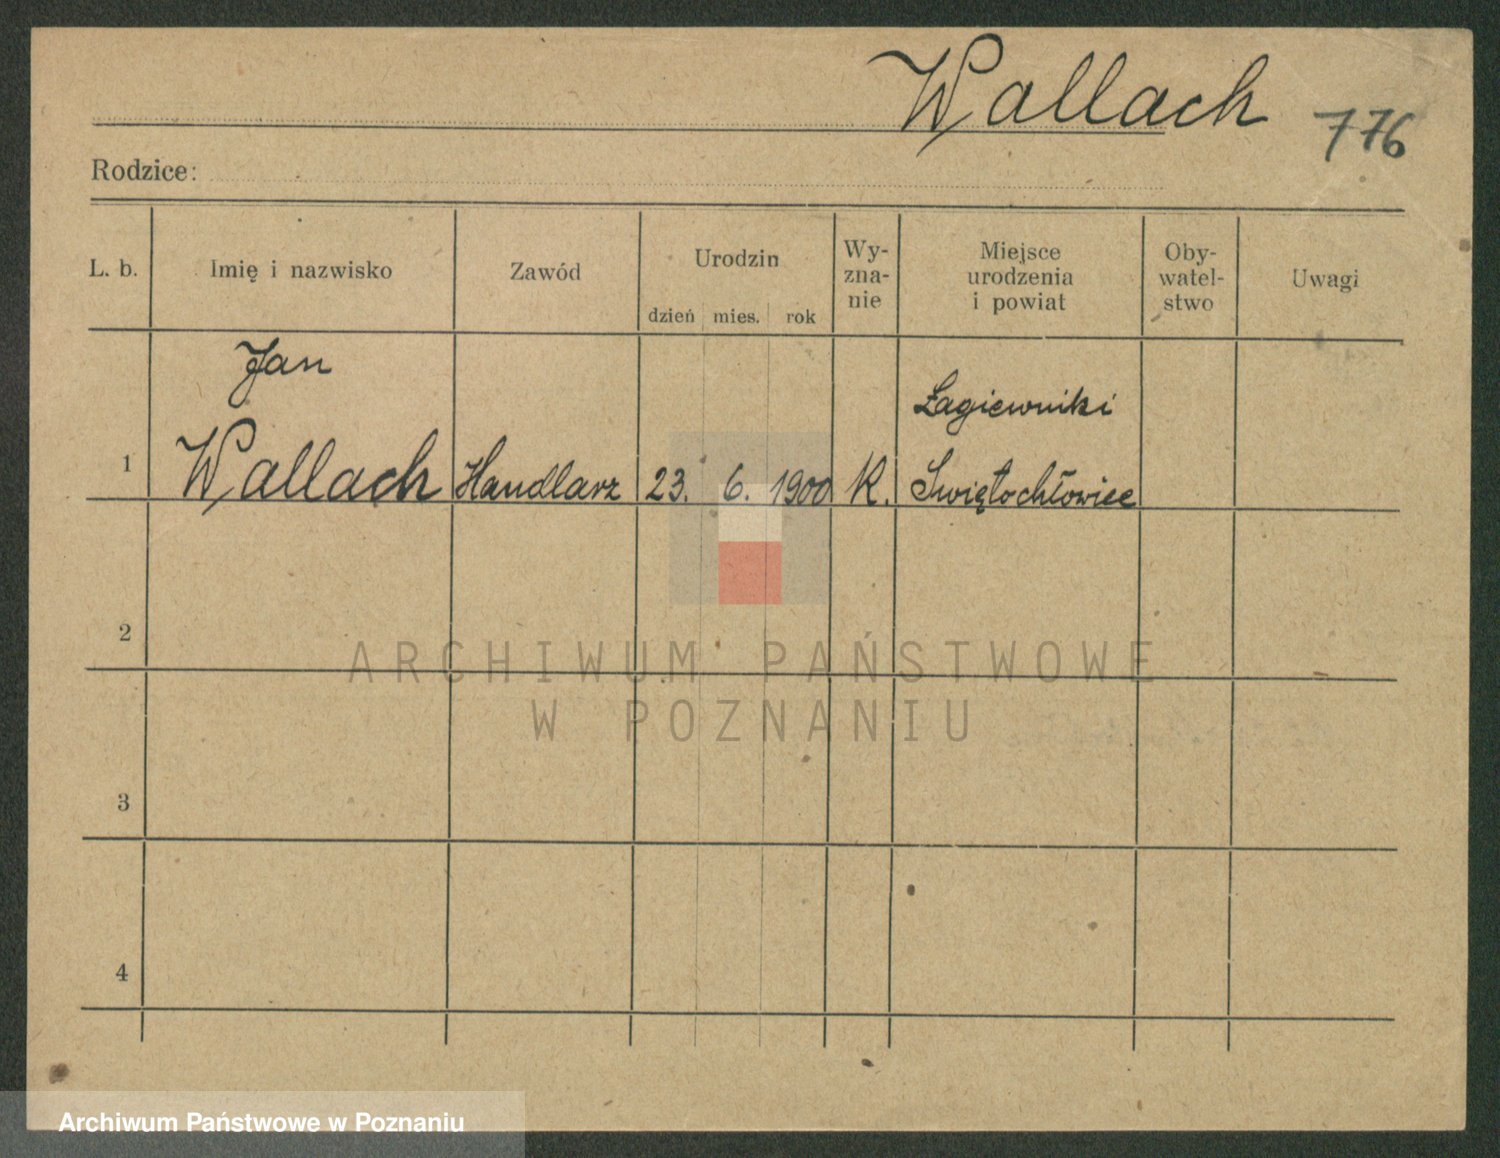 Wallach
776
Rodzice:
L. b.
Imię i nazwisko
Zawód
Urodzin
dzień mies. rok
Wy-
zna-
nie
Miejsce
urodzenia
i powiat
Oby-
watel-
stwo
Uwagi
Jan
Łagiewniki
1 Wallach Handlarz 23. 6. 1900 K. Świętochłowice
2
ARCHIWUM PAŃSTWOWE
W POZNANIU
3
4
Archiwum Państwowe w Poznaniu